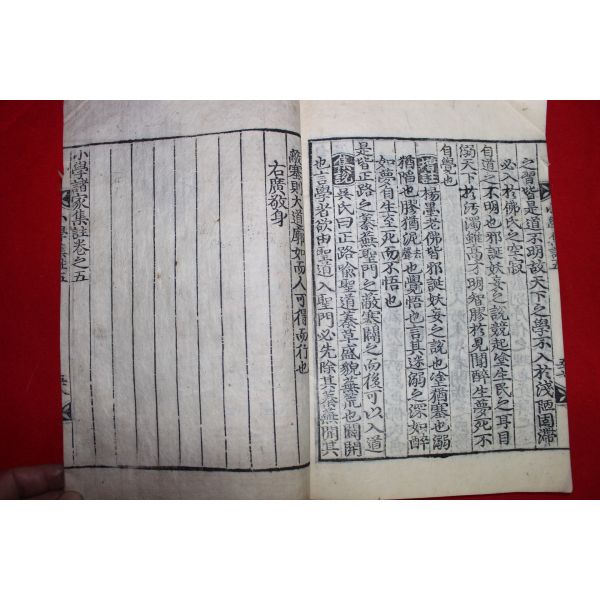 之智皆是道不明故天下之學不入於淺陋固滯
必入於佛氏之空寂
自道之不明也邪誕妖妄之說競起塗生民之耳目
溺天下於汚濁雖高才明智膠於見聞醉生夢死不
自覺也
增註 楊墨老佛皆邪誕妖妄之說也塗猶塞也溺
猶陷也膠猶泥去聲也覺悟也言其迷溺之深如醉
如夢自生至死而不悟也
是皆正路之蓁蕪聖門之蔽塞闢之而後可以入道
集說 吳氏曰正路喩聖道蓁草盛貌蕪荒也闢開
也言學者欲由聖道入聖門必先除其蓁蕪開其
蔽塞則大道廓如而人可得而行也
右廣敬身
小學諸家集註卷之五